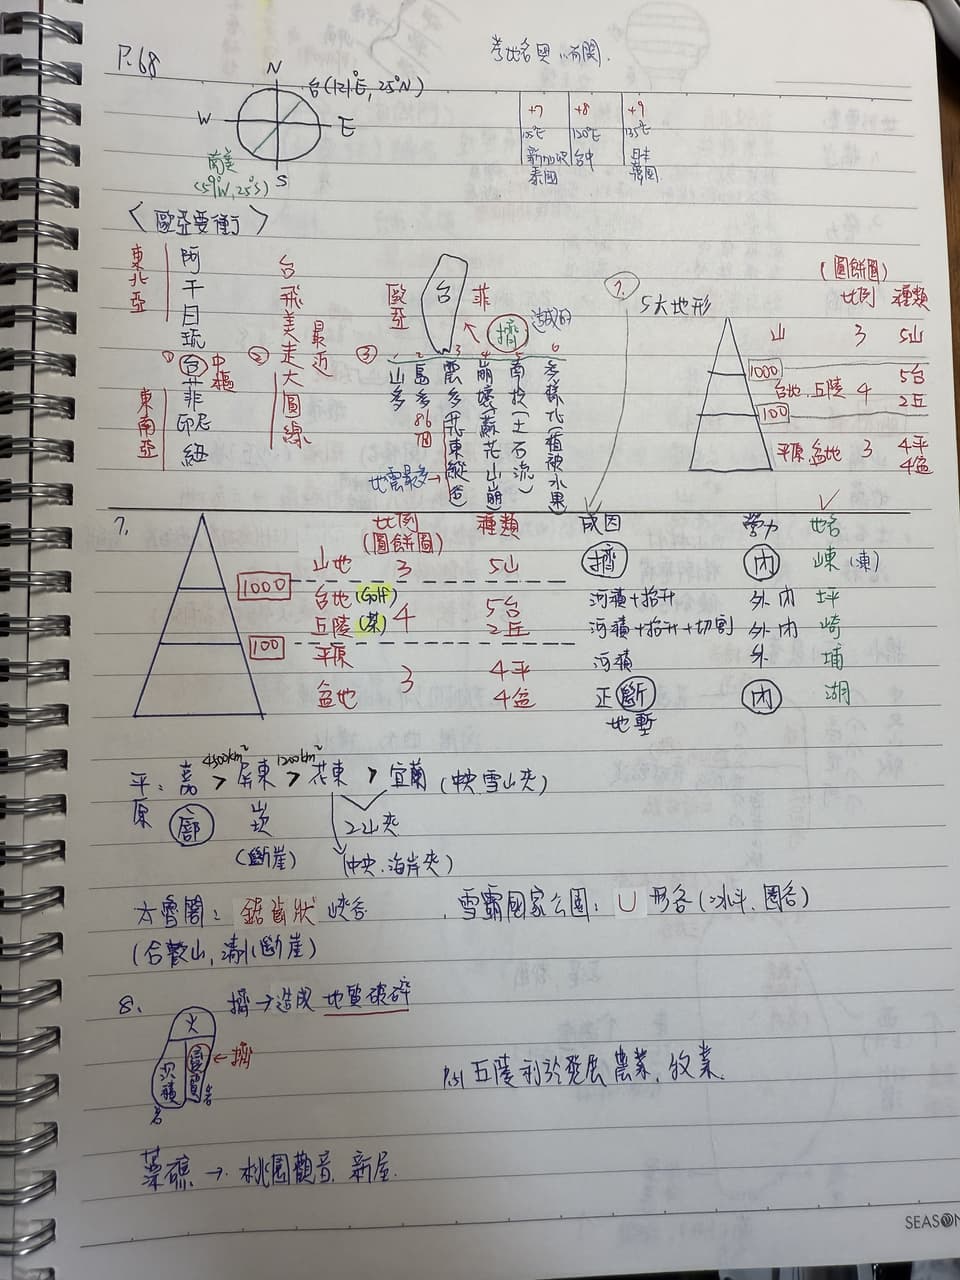 P.68
考地名與
N
台(121°E, 25°N)
W
E
S
南美
(59°W, 25°S)
+7
105°E
泰國
+8
120°E
台中
+9
135°E
日本
韓國
〈歐亞要衝〉
東北亞
阿
千
日
琉
① 台 中樞
東南亞
菲
印尼
紐
② 台飛美走大圓線
最近
③
歐亞
台
菲
擠
造成的
1 山多
2 島多 86個
3 震多(花東縱谷)
地震最多→
4 崩壞(蘇花山崩)
5 南投(土石流)
6 多樣化(植被水果)
7.
5大地形
(圓餅圖)
比例 種類
山 3 5山
1000
台地、丘陵 4 5台
2丘
100
平原、盆地 3 4平
4盆
7.
比例 種類
(圓餅圖)
成因 營力 地名
山地 3 5山 擠 內 崠(凍)
1000
台地(Golf) 4 5台 河積+抬升 外內 坪
丘陵(茶) 2丘 河積+抬升+切割 外內 崎
100
平原 3 4平 河積 外 埔
盆地 4盆 正斷 內 湖
地塹
平原: 嘉 > 屏東 > 花東 > 宜蘭 (中央.雪山夾)
4500km²
1200km²
廍 崁 2山夾
(斷崖) (中央.海岸夾)
太魯閣: 鋸齒狀峽谷
(合歡山, 清水斷崖)
雪霸國家公園: U形谷(冰斗、圈谷)
8.
擠→造成地質破碎
火
沉積岩
變質岩
←擠
P.51 丘陵利於發展農業、牧業.
藻礁→桃園觀音、新屋.
SEASON